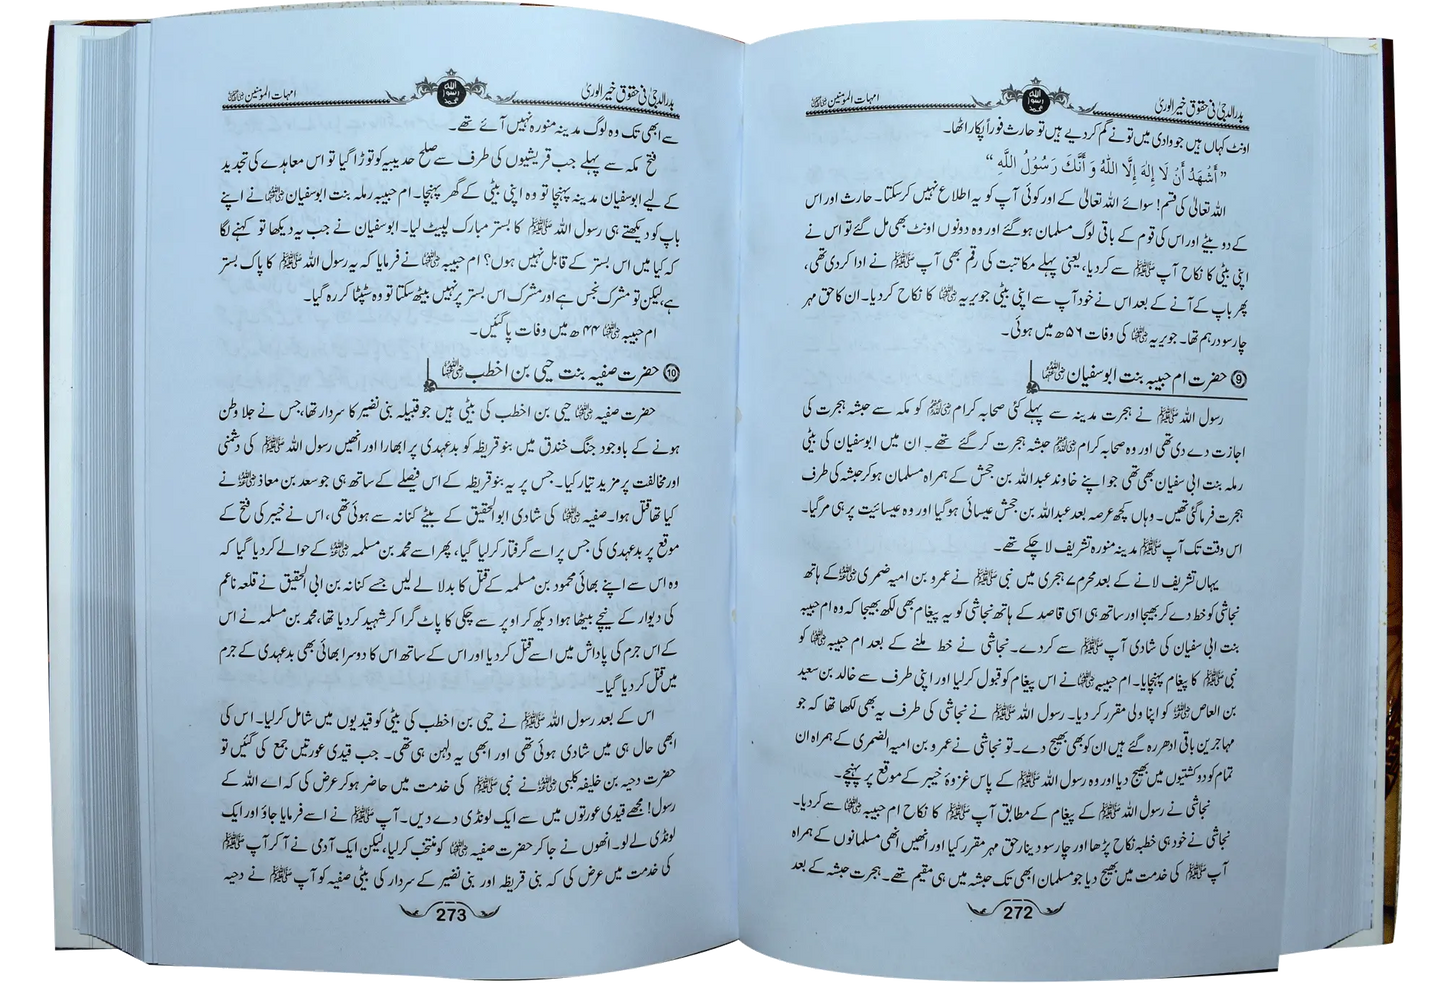 بدر الدجیٰ فی حقوق خیر الوریٰ
امہات المؤمنین رضی اللہ عنہن
اونٹ کہاں ہیں جو وادی میں تو نے گم کر دیے ہیں تو حارث فوراً پکار اٹھا۔
”أَشْهَدُ أَنْ لَا إِلٰهَ إِلَّا اللّٰهُ وَ أَنَّكَ رَسُوْلُ اللّٰهِ“
اللہ تعالیٰ کی قسم! سوائے اللہ تعالیٰ کے اور کوئی آپ کو یہ اطلاع نہیں کر سکتا۔ حارث اور اس
کے دو بیٹے اور اس کی قوم کے باقی لوگ مسلمان ہو گئے اور وہ دونوں اونٹ بھی مل گئے تو اس نے
اپنی بیٹی کا نکاح آپ ﷺ سے کر دیا، یعنی پہلے مکاتبت کی رقم بھی آپ ﷺ نے ادا کر دی تھی،
پھر باپ کے آنے کے بعد اس نے خود آپ سے اپنی بیٹی جویریہ رضی اللہ عنہا کا نکاح کر دیا۔ ان کا حق مہر
چار سو درہم تھا۔ جویریہ رضی اللہ عنہا کی وفات ۵۶ھ میں ہوئی۔
⑨ حضرت ام حبیبہ بنت ابو سفیان رضی اللہ عنہا
رسول اللہ ﷺ نے ہجرت مدینہ سے پہلے کئی صحابہ کرام رضی اللہ عنہم کو مکہ سے حبشہ ہجرت کی
اجازت دے دی تھی اور وہ صحابہ کرام رضی اللہ عنہم حبشہ ہجرت کر گئے تھے۔ ان میں ابو سفیان کی بیٹی
رملہ بنت ابی سفیان بھی تھی جو اپنے خاوند عبداللہ بن جحش کے ہمراہ مسلمان ہو کر حبشہ کی طرف
ہجرت فرما گئی تھیں۔ وہاں کچھ عرصہ بعد عبداللہ بن جحش عیسائی ہو گیا اور وہ عیسائیت پر ہی مر گیا۔
اس وقت تک آپ ﷺ مدینہ منورہ تشریف لا چکے تھے۔
یہاں تشریف لانے کے بعد محرم ۷ ہجری میں نبی ﷺ نے عمرو بن امیہ ضمری رضی اللہ عنہ کے ہاتھ
نجاشی کو خط دے کر بھیجا اور ساتھ ہی اسی قاصد کے ہاتھ نجاشی کو یہ پیغام بھی لکھ بھیجا کہ وہ ام حبیبہ
بنت ابی سفیان کی شادی آپ ﷺ سے کر دے۔ نجاشی نے خط ملنے کے بعد ام حبیبہ رضی اللہ عنہا کو
نبی ﷺ کا پیغام پہنچایا۔ ام حبیبہ رضی اللہ عنہا نے اس پیغام کو قبول کر لیا اور اپنی طرف سے خالد بن سعید
بن العاص رضی اللہ عنہ کو اپنا ولی مقرر کر دیا۔ رسول اللہ ﷺ نے نجاشی کی طرف یہ بھی لکھا تھا کہ جو
مہاجرین باقی ادھر رہ گئے ہیں ان کو بھی بھیج دے۔ تو نجاشی نے عمرو بن امیہ الضمری کے ہمراہ ان
تمام کو دو کشتیوں میں بھیج دیا اور وہ رسول اللہ ﷺ کے پاس غزوۂ خیبر کے موقع پر پہنچے۔
نجاشی نے رسول اللہ ﷺ کے پیغام کے مطابق آپ ﷺ کا نکاح ام حبیبہ رضی اللہ عنہا سے کر دیا۔
نجاشی نے خود ہی خطبہ نکاح پڑھا اور چار سو دینار حق مہر مقرر کیا اور انھیں انھی مسلمانوں کے ہمراہ
آپ ﷺ کی خدمت میں بھیج دیا جو مسلمان ابھی تک حبشہ میں ہی مقیم تھے۔ ہجرت حبشہ کے بعد
272
بدر الدجیٰ فی حقوق خیر الوریٰ
امہات المؤمنین رضی اللہ عنہن
سے ابھی تک وہ لوگ مدینہ منورہ نہیں آئے تھے۔
فتح مکہ سے پہلے جب قریشیوں کی طرف سے صلح حدیبیہ کو توڑا گیا تو اس معاہدے کی تجدید
کے لیے ابو سفیان مدینہ پہنچا تو وہ اپنی بیٹی کے گھر پہنچا۔ ام حبیبہ رملہ بنت ابو سفیان رضی اللہ عنہا نے اپنے
باپ کو دیکھتے ہی رسول اللہ ﷺ کا بستر مبارک لپیٹ لیا۔ ابو سفیان نے جب یہ دیکھا تو کہنے لگا
کہ کیا میں اس بستر کے قابل نہیں ہوں؟ ام حبیبہ رضی اللہ عنہا نے فرمایا کہ یہ رسول اللہ ﷺ کا پاک بستر
ہے، لیکن تو مشرک نجس ہے اور مشرک اس بستر پر نہیں بیٹھ سکتا تو وہ سٹپٹا کر رہ گیا۔
ام حبیبہ رضی اللہ عنہا ۴۴ ھ میں وفات پا گئیں۔
⑩ حضرت صفیہ بنت حیی بن اخطب رضی اللہ عنہا
حضرت صفیہ رضی اللہ عنہا حیی بن اخطب کی بیٹی ہیں جو قبیلہ بنی نضیر کا سردار تھا، جس نے جلا وطن
ہونے کے باوجود جنگ خندق میں بنو قریظہ کو بدعہدی پر ابھارا اور انھیں رسول اللہ ﷺ کی دشمنی
اور مخالفت پر مزید تیار کیا۔ جس پر یہ بنو قریظہ کے اس فیصلے کے ساتھ ہی جو سعد بن معاذ رضی اللہ عنہ نے
کیا تھا قتل ہوا۔ صفیہ رضی اللہ عنہا کی شادی ابو الحقیق کے بیٹے کنانہ سے ہوئی تھی، اس نے خیبر کی فتح کے
موقع پر بدعہدی کی جس پر اسے گرفتار کر لیا گیا، پھر اسے محمد بن مسلمہ رضی اللہ عنہ کے حوالے کر دیا گیا کہ
وہ اس سے اپنے بھائی محمود بن مسلمہ کے قتل کا بدلا لے لیں جسے کنانہ بن ابی الحقیق نے قلعہ ناعم
کی دیوار کے نیچے بیٹھا ہوا دیکھ کر اوپر سے چکی کا پاٹ گرا کر شہید کر دیا تھا، محمد بن مسلمہ نے اس
کے اس جرم کی پاداش میں اسے قتل کر دیا اور اس کے ساتھ اس کا دوسرا بھائی بھی بدعہدی کے جرم
میں قتل کر دیا گیا۔
اس کے بعد رسول اللہ ﷺ نے حیی بن اخطب کی بیٹی کو قیدیوں میں شامل کر لیا۔ اس کی
ابھی حال ہی میں شادی ہوئی تھی اور ابھی یہ دلہن ہی تھی۔ جب قیدی عورتیں جمع کی گئیں تو
حضرت دحیہ بن خلیفہ کلبی رضی اللہ عنہ نے نبی ﷺ کی خدمت میں حاضر ہو کر عرض کی کہ اے اللہ کے
رسول! مجھے قیدی عورتوں میں سے ایک لونڈی دے دیں۔ آپ ﷺ نے اسے فرمایا جاؤ اور ایک
لونڈی لے لو۔ انھوں نے جا کر حضرت صفیہ رضی اللہ عنہا کو منتخب کر لیا، لیکن ایک آدمی نے آ کر آپ ﷺ
کی خدمت میں عرض کی کہ بنی قریظہ اور بنی نضیر کے سردار کی بیٹی صفیہ کو آپ ﷺ نے دحیہ
273